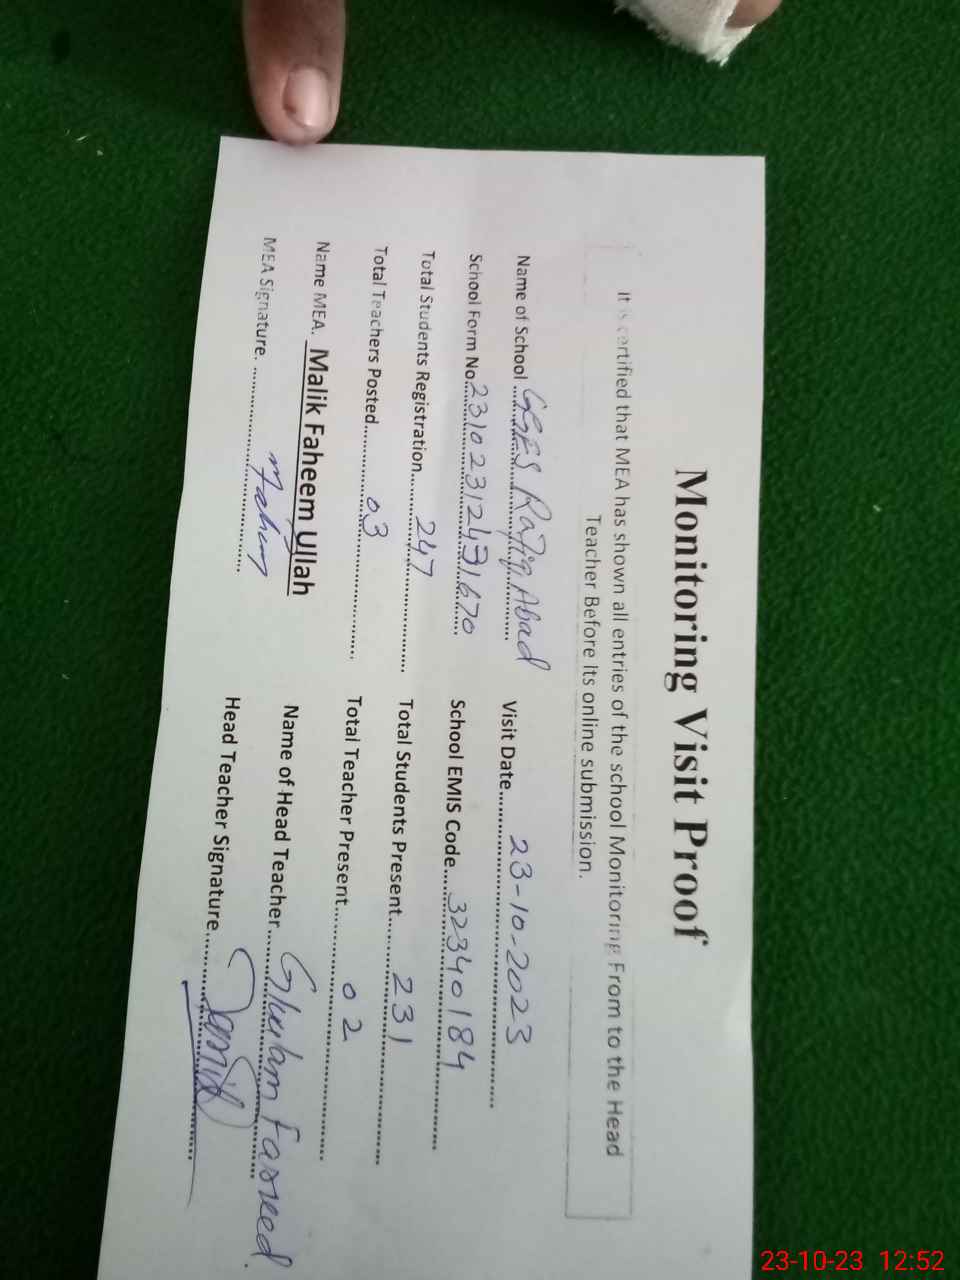 Monitoring Visit Proof
It is certified that MEA has shown all entries of the school Monitoring From to the Head
Teacher Before Its online submission.
Name of School GGES Rafiq Abad Visit Date 23-10-2023
School Form No 23102312431670 School EMIS Code 32340184
Total Students Registration 247 Total Students Present 231
Total Teachers Posted 03 Total Teacher Present 02
Name MEA. Malik Faheem Ullah Name of Head Teacher Ghulam Fareed.
MEA Signature. Fahim Head Teacher Signature
23-10-23 12:52